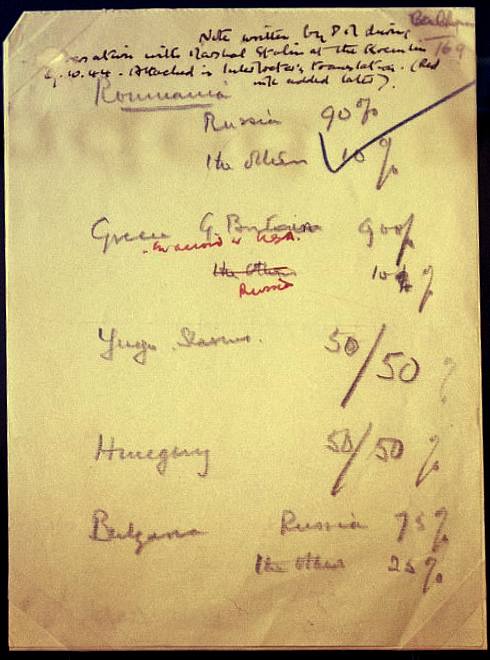 Note written by P.M during
conversation with Marshal Stalin at the Kremlin
9.10.44. Attached is Interpreter's translation. (Red
ink added later).
169
Roumania
Russia 90%
The others 10%
Greece G. Britain 90%
in accord w USA.
The Others 10%
Russia
Yugo Slavia. 50/50 %
Hungary 50/50 %
Bulgaria Russia 75%
the others 25%